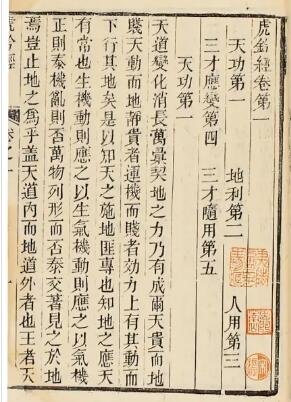 虎鈐經卷第一
天功第一 地利第二 人用第三
三才應變第四 三才隨用第五
天功第一
天道變化消長萬彙契地之力乃有成爾天貴而地
賤天動而地靜貴者運機而賤者効力上有其動而
下行其地矣是以知天之施地匪專也知地之應天
有常也生機動則應之以生氣機動則應之以氣機
正則泰機亂則否萬物列形而否泰交著見之於地
焉豈止地之爲乎蓋天道內而地道外者也王者天